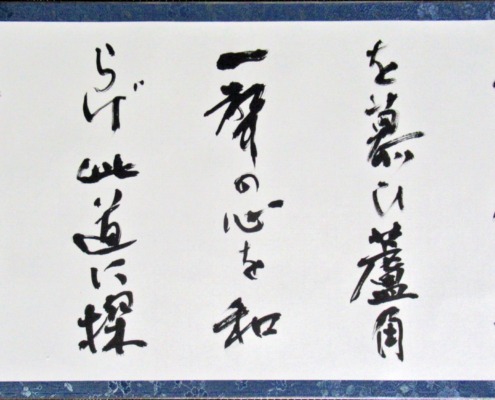 を慕ひ蘆角
一聲の心を和
らげ此道に探